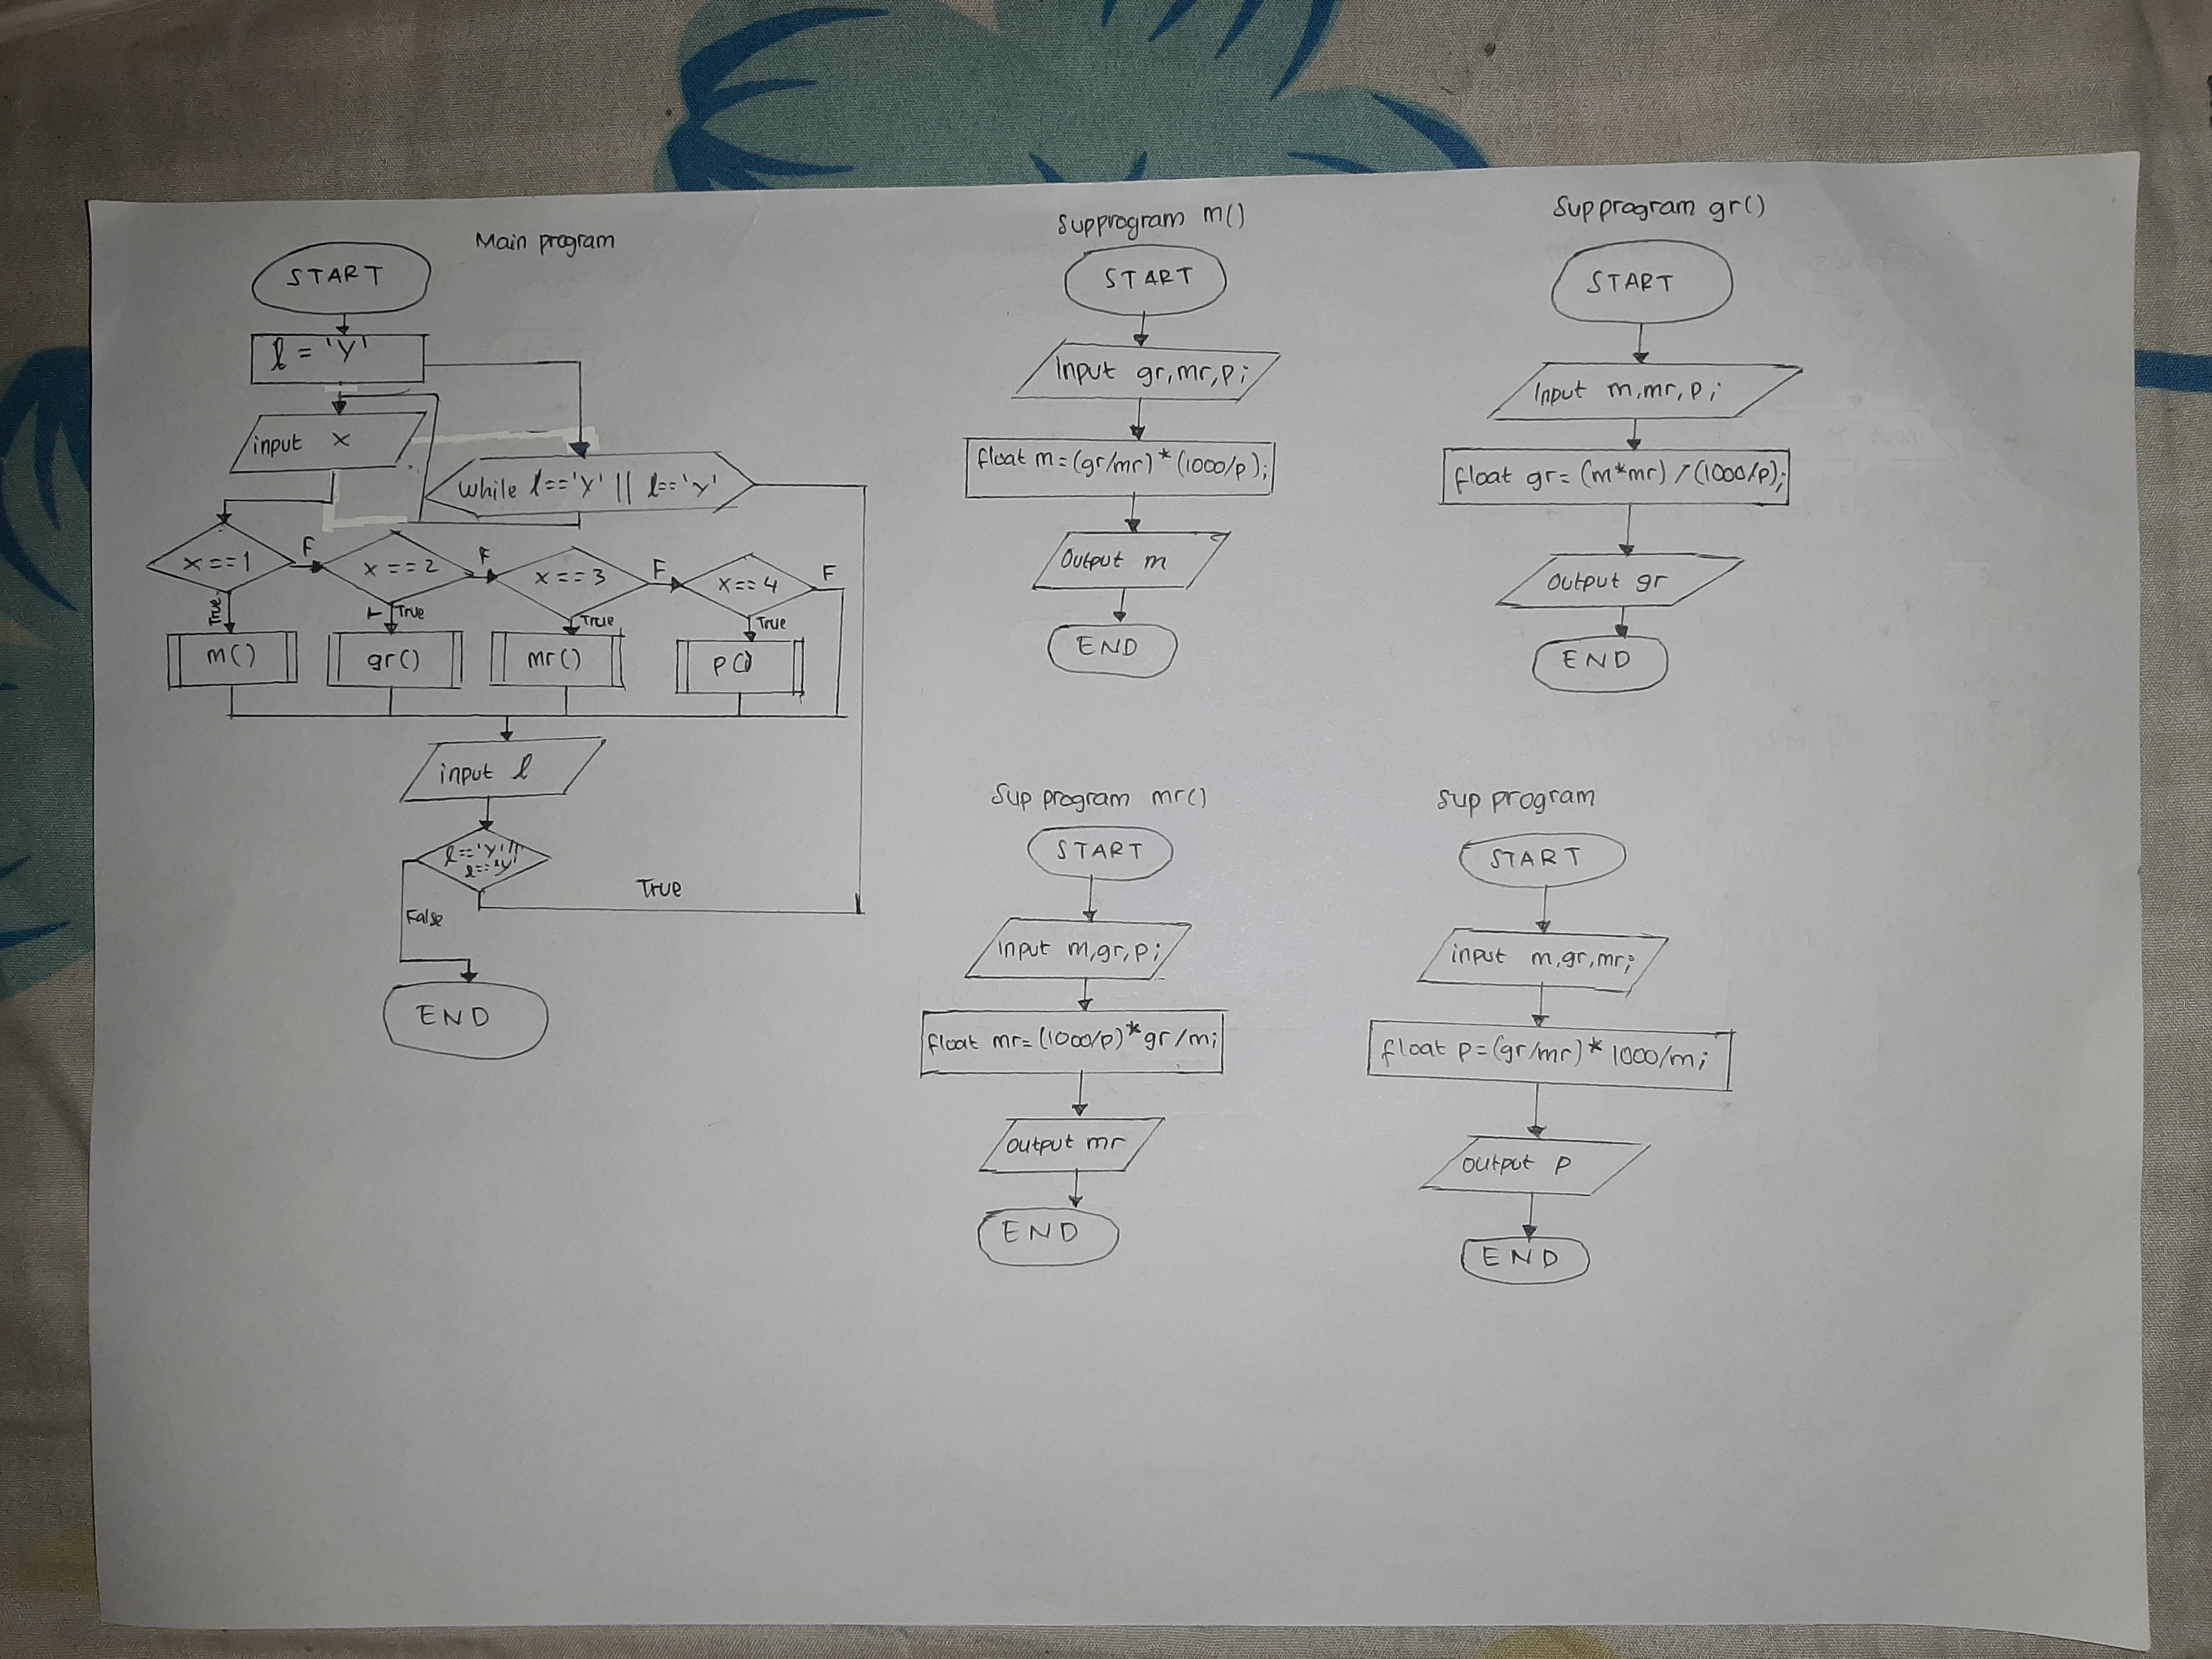 Main program
START
l = 'Y'
input x
while l=='Y' || l=='Y'
x==1
F
x==2
F
x==3
F
x==4
F
True
True
True
True
m()
gr()
mr()
P()
input l
l=='Y'||
l=='Y'
False
True
END
Supprogram m()
START
Input gr,mr,P;
float m=(gr/mr)*(1000/p);
Output m
END
Supprogram gr()
START
Input m,mr,P;
float gr=(m*mr)/(1000/p);
Output gr
END
Sup program mr()
START
Input m,gr,P;
float mr=(1000/p)*gr/m;
Output mr
END
Sup program
START
input m,gr,mr;
float P=(gr/mr)*1000/m;
Output P
END